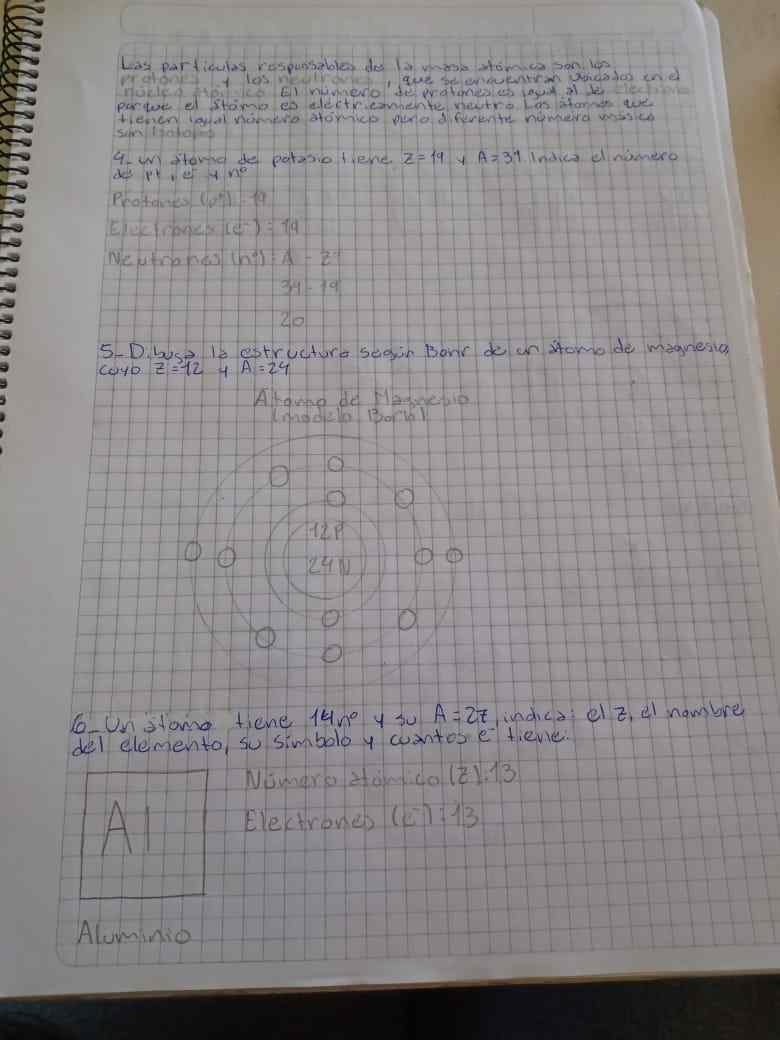 Las partículas responsables de la masa atómica son los
protones y los neutrones, que se encuentran ubicados en el
núcleo atómico. El número de protones es igual al de electrones
porque el átomo es eléctricamente neutro. Los átomos que
tienen igual número atómico pero diferente número másico
son isótopos
4- un átomo de potasio tiene Z=19 y A=39. Indica el número
de p+, e- y nº
Protones (p+) = 19
Electrones (e-) = 19
Neutrones (nº) = A - Z
39 - 19
20
5- Dibuja la estructura según Bohr de un átomo de magnesio,
cuyo Z=12 y A=24
Átomo de Magnesio
(modelo Borh)
12P
24N
6- Un átomo tiene 14nº y su A=27, indica: el Z, el nombre
del elemento, su símbolo y cuantos e- tiene.
Número atómico (Z): 13
Al
Electrones (e-): 13
Aluminio